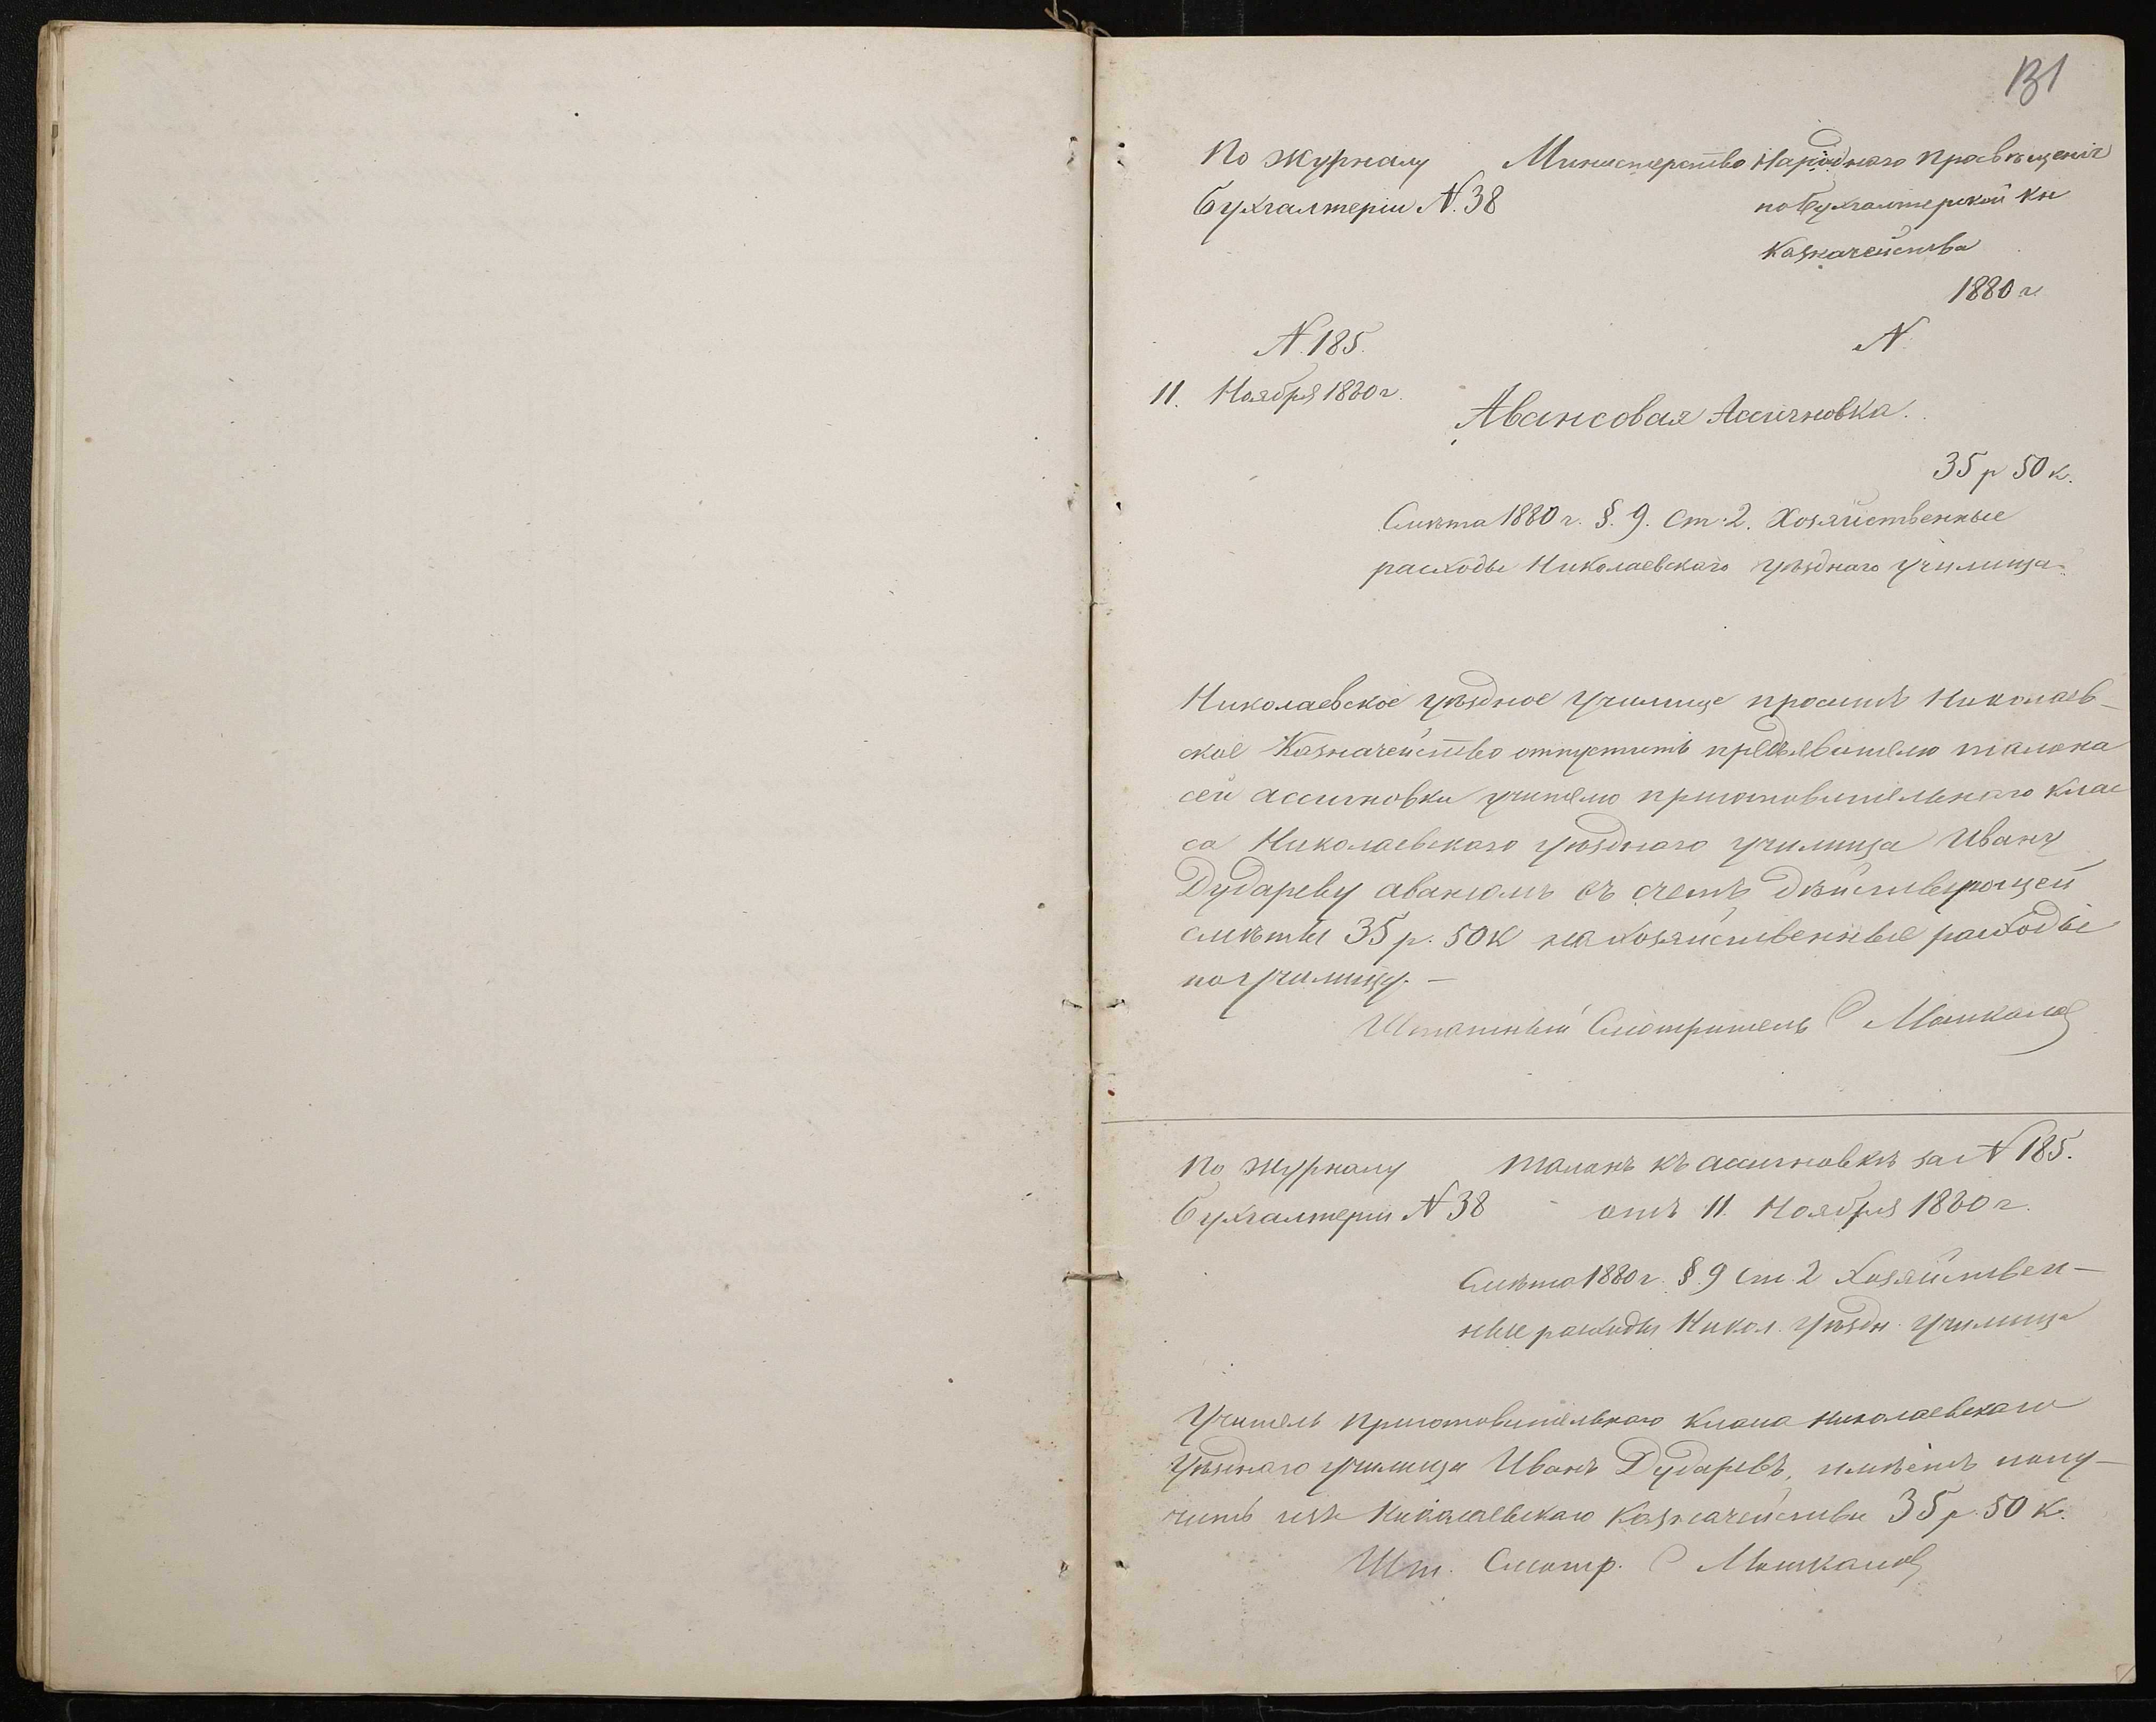 131
По журналу
Бухгалтеріи N. 38
Министерство Народнаго Просвѣщенія
по Бухгалтерской кн
Казначейства
1880 г.
N. 185.
N.
11. Ноября 1880 г.
Авансовая Ассигновка.
35 р 50 к.
Смѣта 1880 г. §. 9. Ст. 2. Хозяйственные
расходы Николаевскаго уѣзднаго училища.
Николаевское уѣздное училище проситъ Николаев-
ское Казначейство отпустить предъявителю талона
сей ассигновки учителю приготовительнаго клас
са Николаевскаго уѣзднаго училища Ивану
Дудареву авансомъ въ счетъ дѣйствующей
смѣты 35 р. 50 к на хозяйственные расходы
по училищу. —
Штатный Смотритель
По журналу
Бухгалтеріи N 38
Талонъ къ ассигновкѣ за N 185.
отъ 11. Ноября 1880 г.
Смѣта 1880 г. §. 9 ст. 2 Хозяйствен-
ные расходы Никол. Уѣздн. училища
Учитель приготовительнаго класса Николаевскаго
Уѣзднаго училища Иванъ Дударевъ, имѣетъ полу-
чить изъ Николаевскаго Казначейства 35 р. 50 к.
Шт. Смотр.